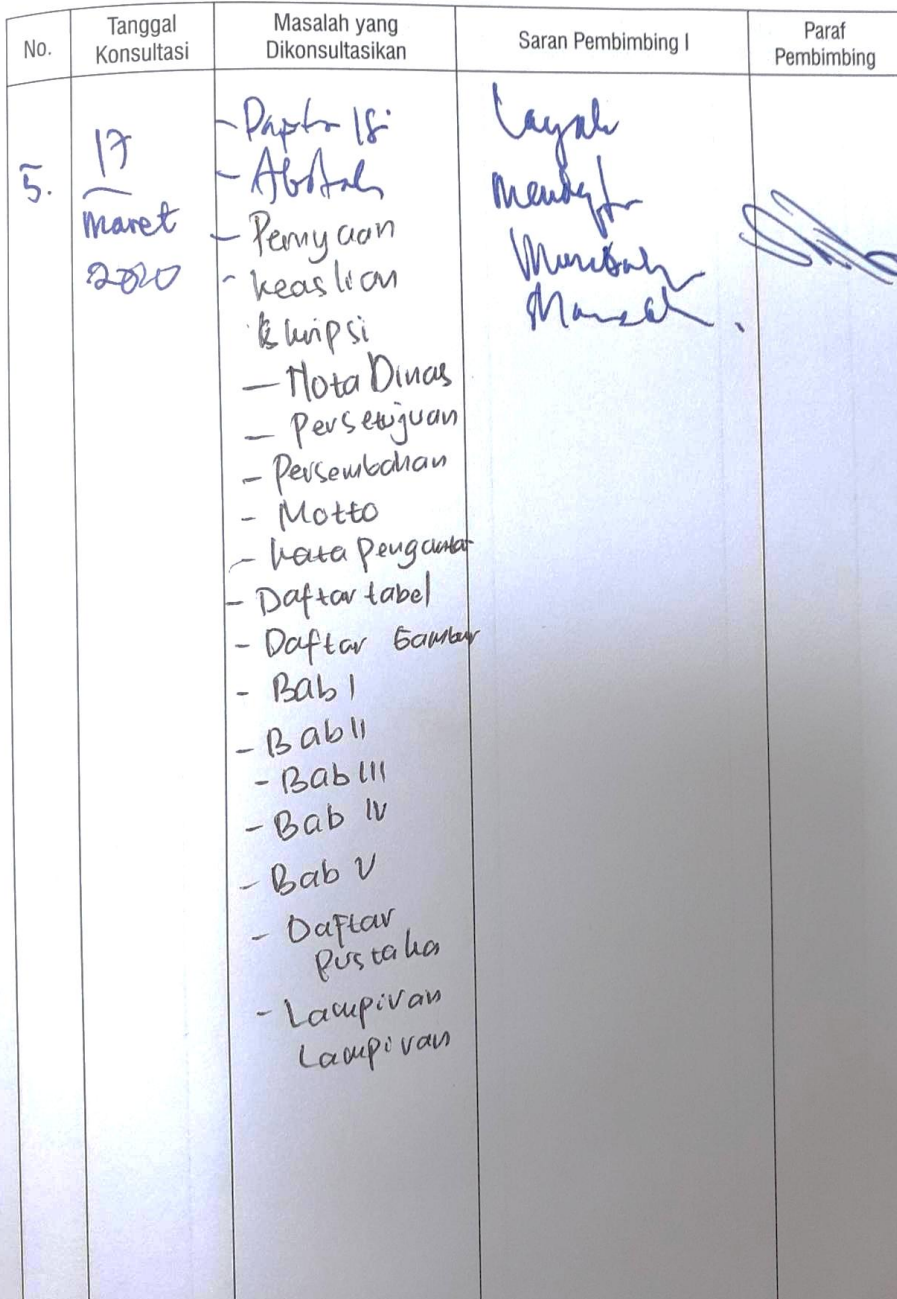 No.
Tanggal
Konsultasi
Masalah yang
Dikonsultasikan
Saran Pembimbing I
Paraf
Pembimbing
5.
17
Maret
2020
- Daftar Isi
- Abstrak
- Pernyaan
- keaslian
Skripsi
- Nota Dinas
- Persetujuan
- Persembahan
- Motto
- kata Pengantar
- Daftar tabel
- Daftar Gambar
- Bab I
- Bab II
- Bab III
- Bab IV
- Bab V
- Daftar
Pustaka
- Lampiran
Lampiran
Layak
mendaftar